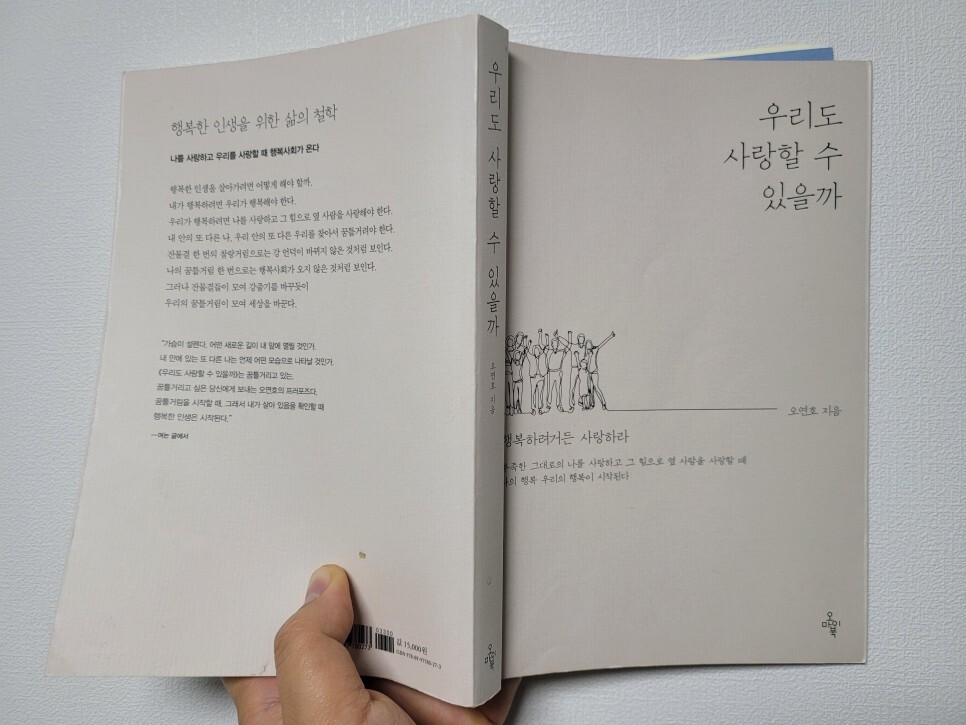 행복한 인생을 위한 삶의 철학
나를 사랑하고 우리를 사랑할 때 행복사회가 온다
행복한 인생을 살아가려면 어떻게 해야 할까.
내가 행복하려면 우리가 행복해야 한다.
우리가 행복하려면 나를 사랑하고 그 힘으로 옆 사람을 사랑해야 한다.
내 안의 또 다른 나, 우리 안의 또 다른 우리를 찾아서 꿈틀거려야 한다.
잔물결 한 번의 찰랑거림으로는 강 언덕이 바뀌지 않은 것처럼 보인다.
나의 꿈틀거림 한 번으로는 행복사회가 오지 않은 것처럼 보인다.
그러나 잔물결들이 모여 강줄기를 바꾸듯이
우리의 꿈틀거림이 모여 세상을 바꾼다.
"가슴이 설렌다. 어떤 새로운 길이 내 앞에 열릴 것인가.
내 안에 있는 또 다른 나는 언제 어떤 모습으로 나타날 것인가.
《우리도 사랑할 수 있을까》는 꿈틀거리고 있는,
꿈틀거리고 싶은 당신에게 보내는 오연호의 프러포즈다.
꿈틀거림을 시작할 때, 그래서 내가 살아 있음을 확인할 때
행복한 인생은 시작된다."
—여는 글에서
03300
값 15,000원
오마이북
우리도 사랑할 수 있을까
오연호 지음
오마이북
우리도
사랑할 수
있을까
오연호 지음
행복하려거든 사랑하라
족한 그대로의 나를 사랑하고 그 힘으로 옆 사람을 사랑할 때
의 행복 우리의 행복이 시작된다
오마이북